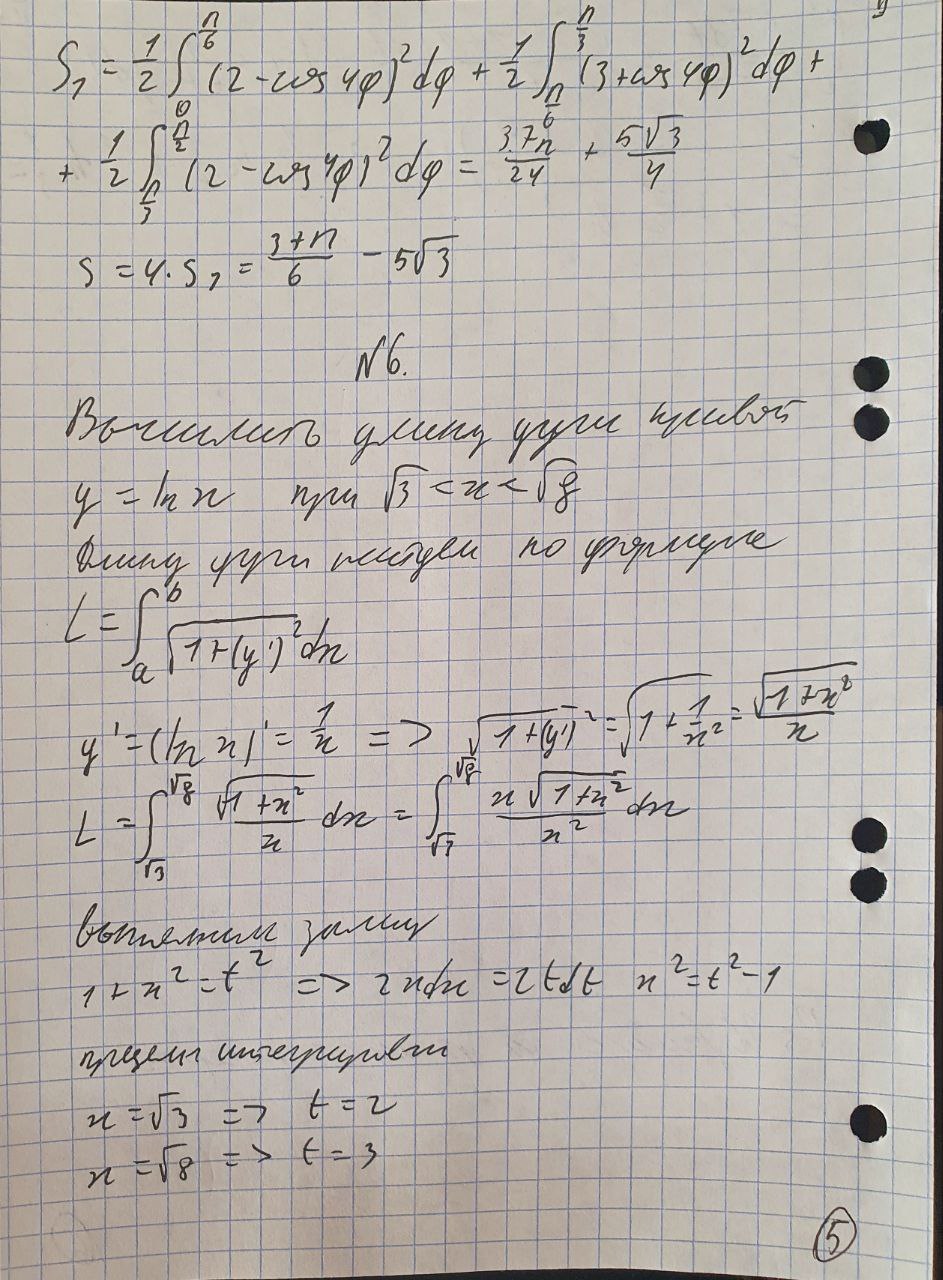 S₁ = 1/2 ∫₀^(π/6) (2 - cos 4φ)² dφ + 1/2 ∫_(π/6)^(π/3) (3 + cos 4φ)² dφ +
+ 1/2 ∫_(π/3)^(π/2) (2 - cos 4φ)² dφ = 37π/24 + 5√3/4
S = 4 · S₁ = 3+π/6 - 5√3
N6.
Вычислить длину дуги кривой
y = ln x при √3 < x < √8
Длину дуги найдем по формуле
L = ∫_a^b √(1 + (y')²) dx
y' = (ln x)' = 1/x => √(1 + (y')²) = √(1 + 1/x²) = √(1 + x²)/x
L = ∫_(√3)^(√8) √(1 + x²)/x dx = ∫_(√3)^(√8) x√(1 + x²)/x² dx
выполним замену
1 + x² = t² => 2xdx = 2tdt x² = t² - 1
пределы интегрирован
x = √3 => t = 2
x = √8 => t = 3
5